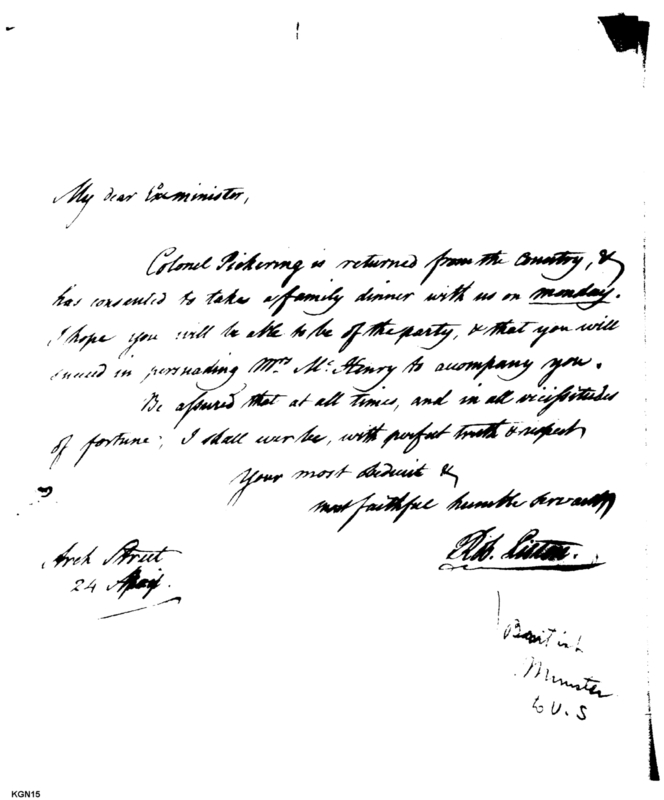 My dear Exminister,
Colonel Pickering is returned from the Country, &
has consented to take a family dinner with us on monday.
I hope you will be able to be of the party, & that you will
succeed in persuading Mrs McHenry to accompany you.
Be assured that at all times, and in all vicissitudes
of fortune, I shall ever be, with perfect truth & respect
Your most Obedient &
most faithful humble Servant
Rob. Liston.
Arch Street
24
British
Minister
to U.S
KGN15